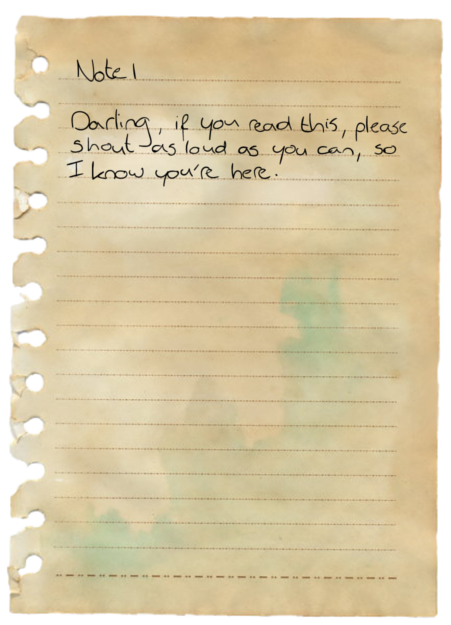 Note 1
Darling, if you read this, please
shout as loud as you can, so
I know you're here.